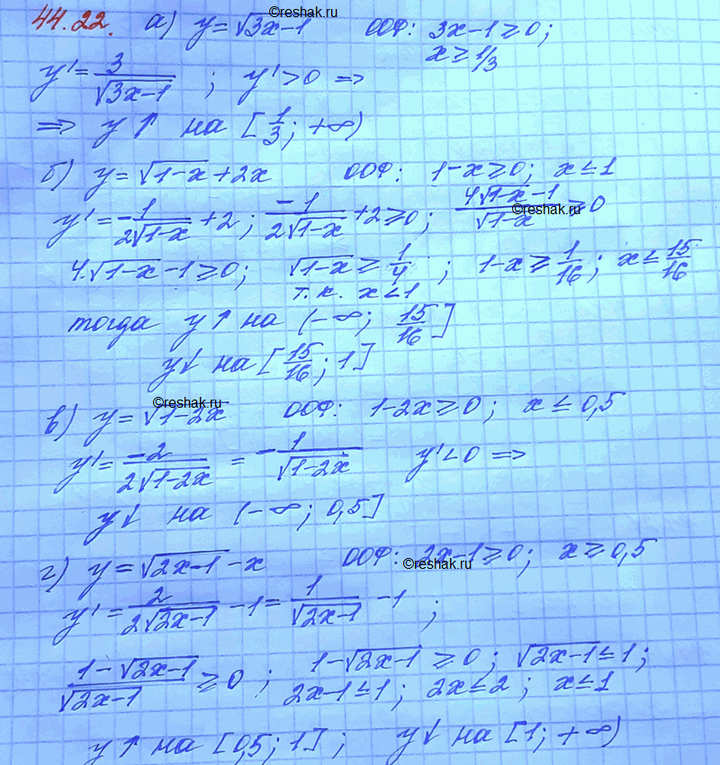 ©reshak.ru
44.22. а) y=√(3x-1) ООФ: 3x-1≥0;
x≥1/3
y'=3/√(3x-1) ; y'>0 =>
=> y↑ на [1/3; +∞)
б) y=√(1-x)+2x ООФ: 1-x≥0; x≤1
y'=-1/(2√(1-x))+2; -1/(2√(1-x))+2≥0; (4√(1-x)-1)/√(1-x)≥0
©reshak.ru
4.√(1-x)-1≥0; √(1-x)≥1/4; 1-x≥1/16; x≤15/16
т.к. x<1
тогда y↑ на (-∞; 15/16]
y↓ на [15/16; 1]
©reshak.ru
в) y=√(1-2x) ООФ: 1-2x≥0; x≤0,5
y'=-2/(2√(1-2x)) = -1/√(1-2x) y'<0 =>
y↓ на (-∞; 0,5]
г) y=√(2x-1)-x ООФ: 2x-1≥0; x≥0,5
©reshak.ru
y'=2/(2√(2x-1))-1=1/√(2x-1)-1;
(1-√(2x-1))/√(2x-1)≥0; 1-√(2x-1)≥0; √(2x-1)≤1;
2x-1≤1; 2x≤2; x≤1
y↑ на [0,5; 1]; y↓ на [1; +∞)